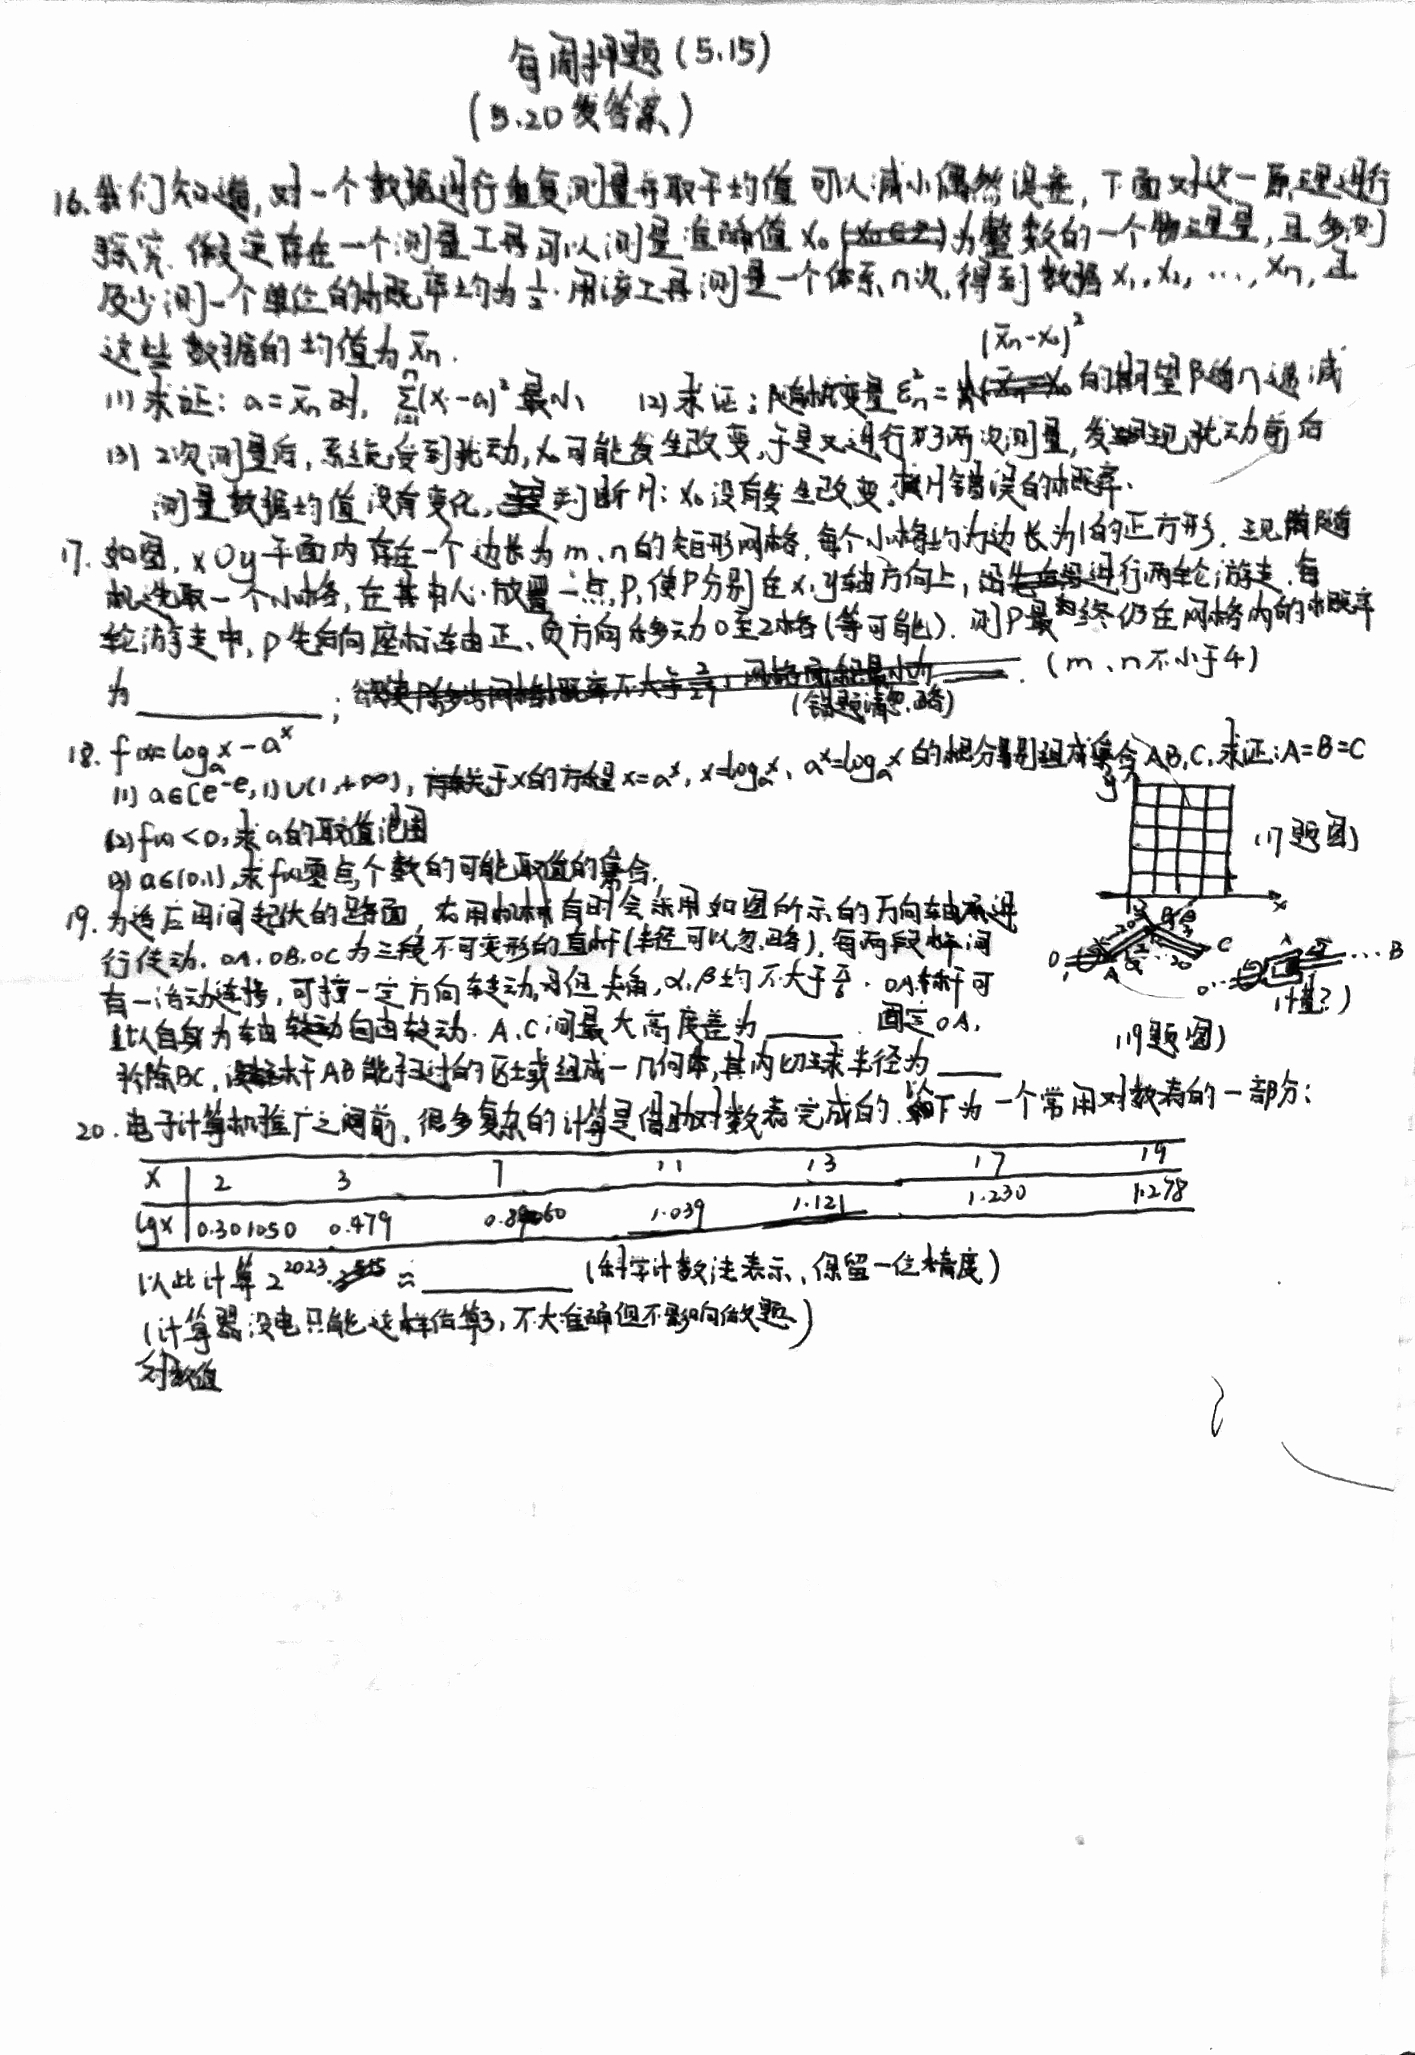 每周押题(5.15)
(5.20发答案)
16.我们知道,对一个数据进行重复测量并取平均值可以减小偶然误差,下面对这一原理进行
探究.假定存在一个测量工具可以测量准确值x₀为整数的一个物理量,且多测
及少测一个单位的概率均为1/2.用该工具测量一个体系n次,得到数据x₁,x₂,…,xn,且
这些数据的均值为x̄n.
(1)求证:a=x̄n时,∑(xᵢ-a)²最小 (2)求证:随机变量εn²=(x̄n-x₀)²的期望随n递减
(3)2次测量后,系统受到扰动,x₀可能发生改变,于是又进行了两次测量,发现扰动前后
测量数据均值没有变化,判断H:x₀没有发生改变.求H错误的概率.
17.如图,xOy平面内存在一个边长为m、n的矩形网格,每个小格均为边长为1的正方形.现随
机选取一个小格,在其中心放置一点P,使P分别在x,y轴方向上,进行两轮游走.每
轮游走中,P先后向座标轴正、负方向移动0至2格(等可能).则P最终仍在网格内的概率
为______; (m、n不小于4)
(错题请忽略)
18.f(x)=logₐx-aˣ
(1)a∈[e^-e,1)∪(1,+∞),关于x的方程x=aˣ,x=logₐx,aˣ=logₐx的根分别组成集合A,B,C,求证:A=B=C
(2)f(x)<0,求a的取值范围
(3)a∈(0,1),求f(x)零点个数的可能取值的集合.
(17题图)
19.为适应田间起伏的路面,农用机械有时会采用如图所示的万向轴承进
行传动.OA,OB,OC为三段不可变形的直杆(半径可以忽略),每两段杆间
有一活动连接,可按一定方向转动,但夹角,α,β均不大于π/6.OA杆可
以自身为轴自由转动.A、C间最大高度差为____ 固定OA,
拆除BC,杆AB能扫过的区域组成一几何体,其内切球半径为____
(19题图)
20.电子计算机推广之前,很多复杂的计算是借助对数表完成的.以下为一个常用对数表的一部分:
x 2 3 7 11 13 17 19
lgx 0.301050 0.479 1.039 1.121 1.230 1.278
以此计算2^2023≈______(科学计数法表示,保留一位精度)
(计算器没电只能这样估算了,不大准确但不影响做题)
对数值